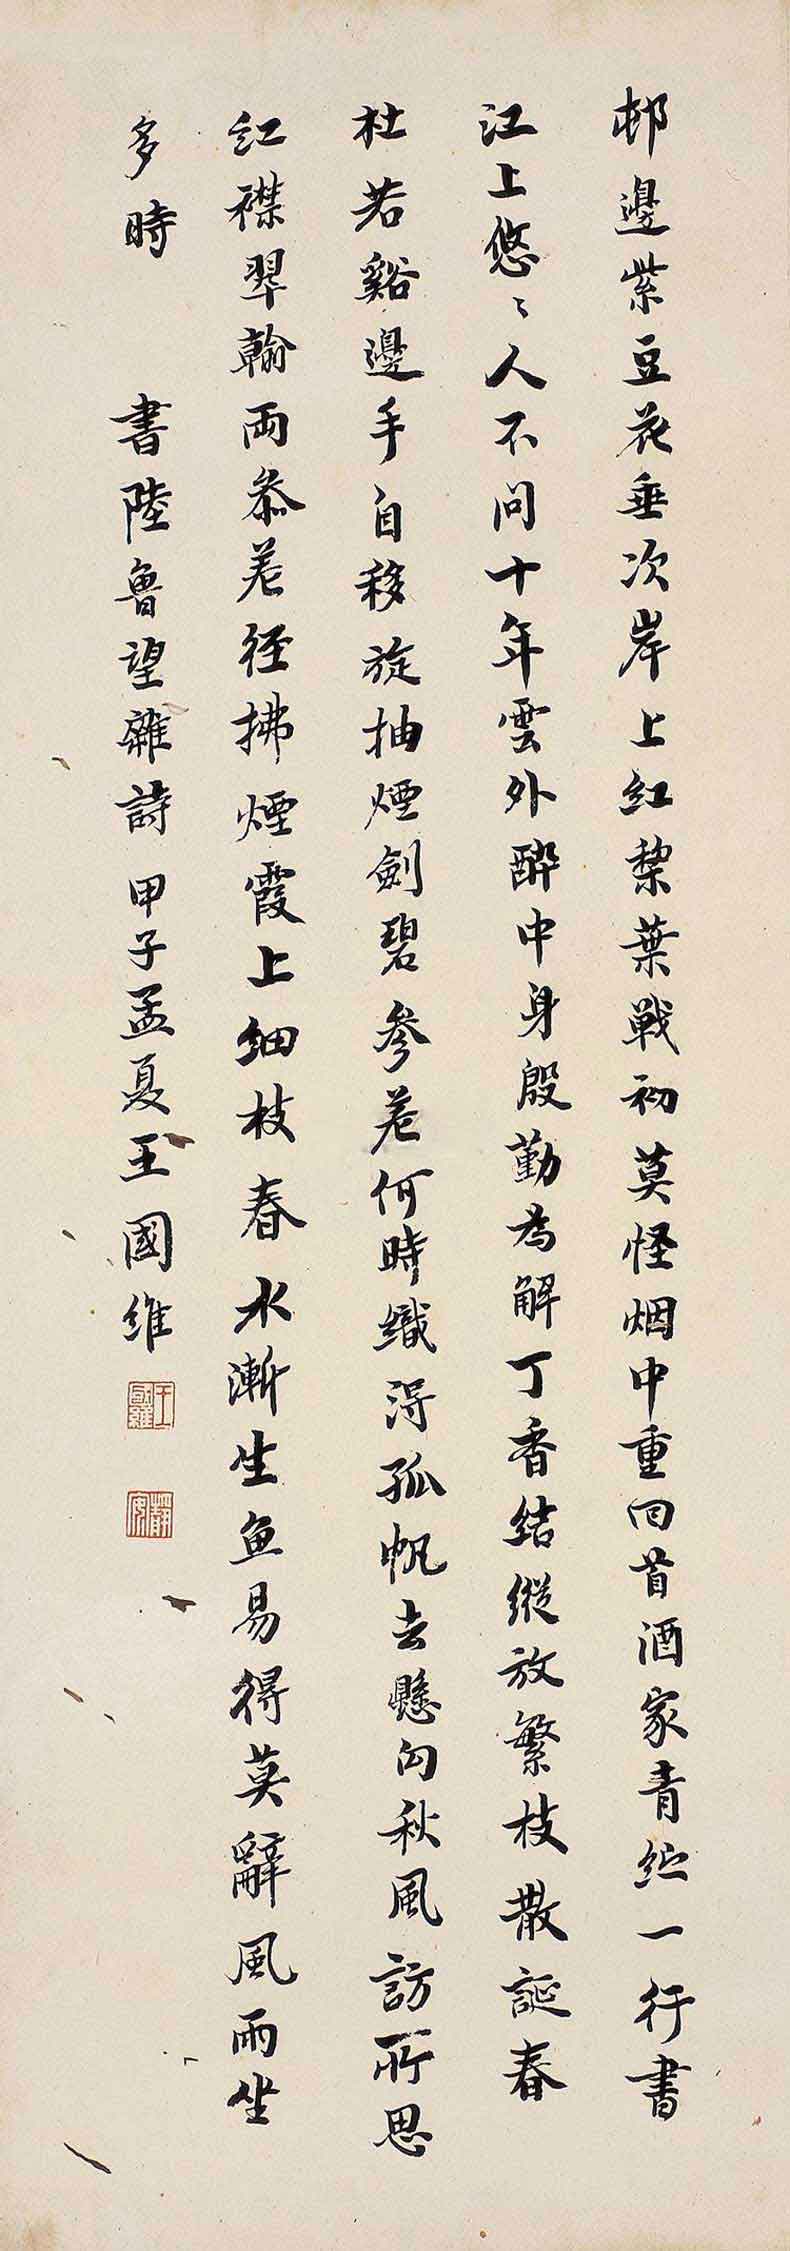 邨邊紫豆花垂次岸上紅棃葉戰初莫怪烟中重回首酒家青紵一行書
江上悠〻人不問十年雲外醉中身殷勤為解丁香結縱放繁枝散誕春
杜若谿邊手自移旋抽煙劍碧參差何時織得孤帆去懸向秋風訪所思
紅襟翠翰兩參差徑拂煙霞上細枝春水漸生魚易得莫辭風雨坐
多時 書陸魯望雜詩 甲子孟夏王國維
王國維
靜安